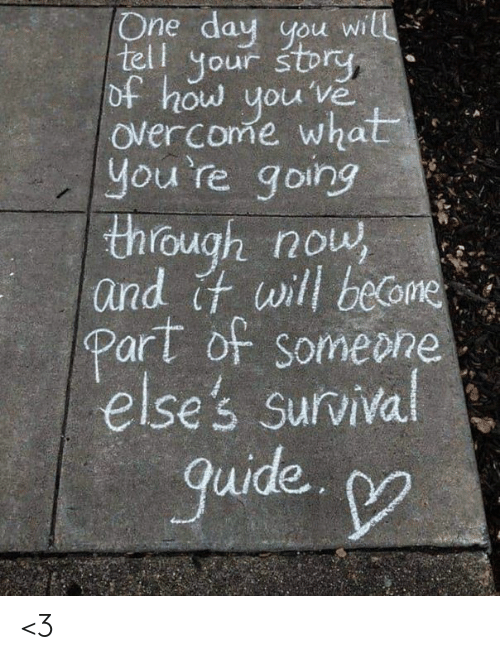 One day you will
tell your story
of how you've
overcome what
you're going
through now,
and it will become
part of someone
else's survival
guide. ♡
<3